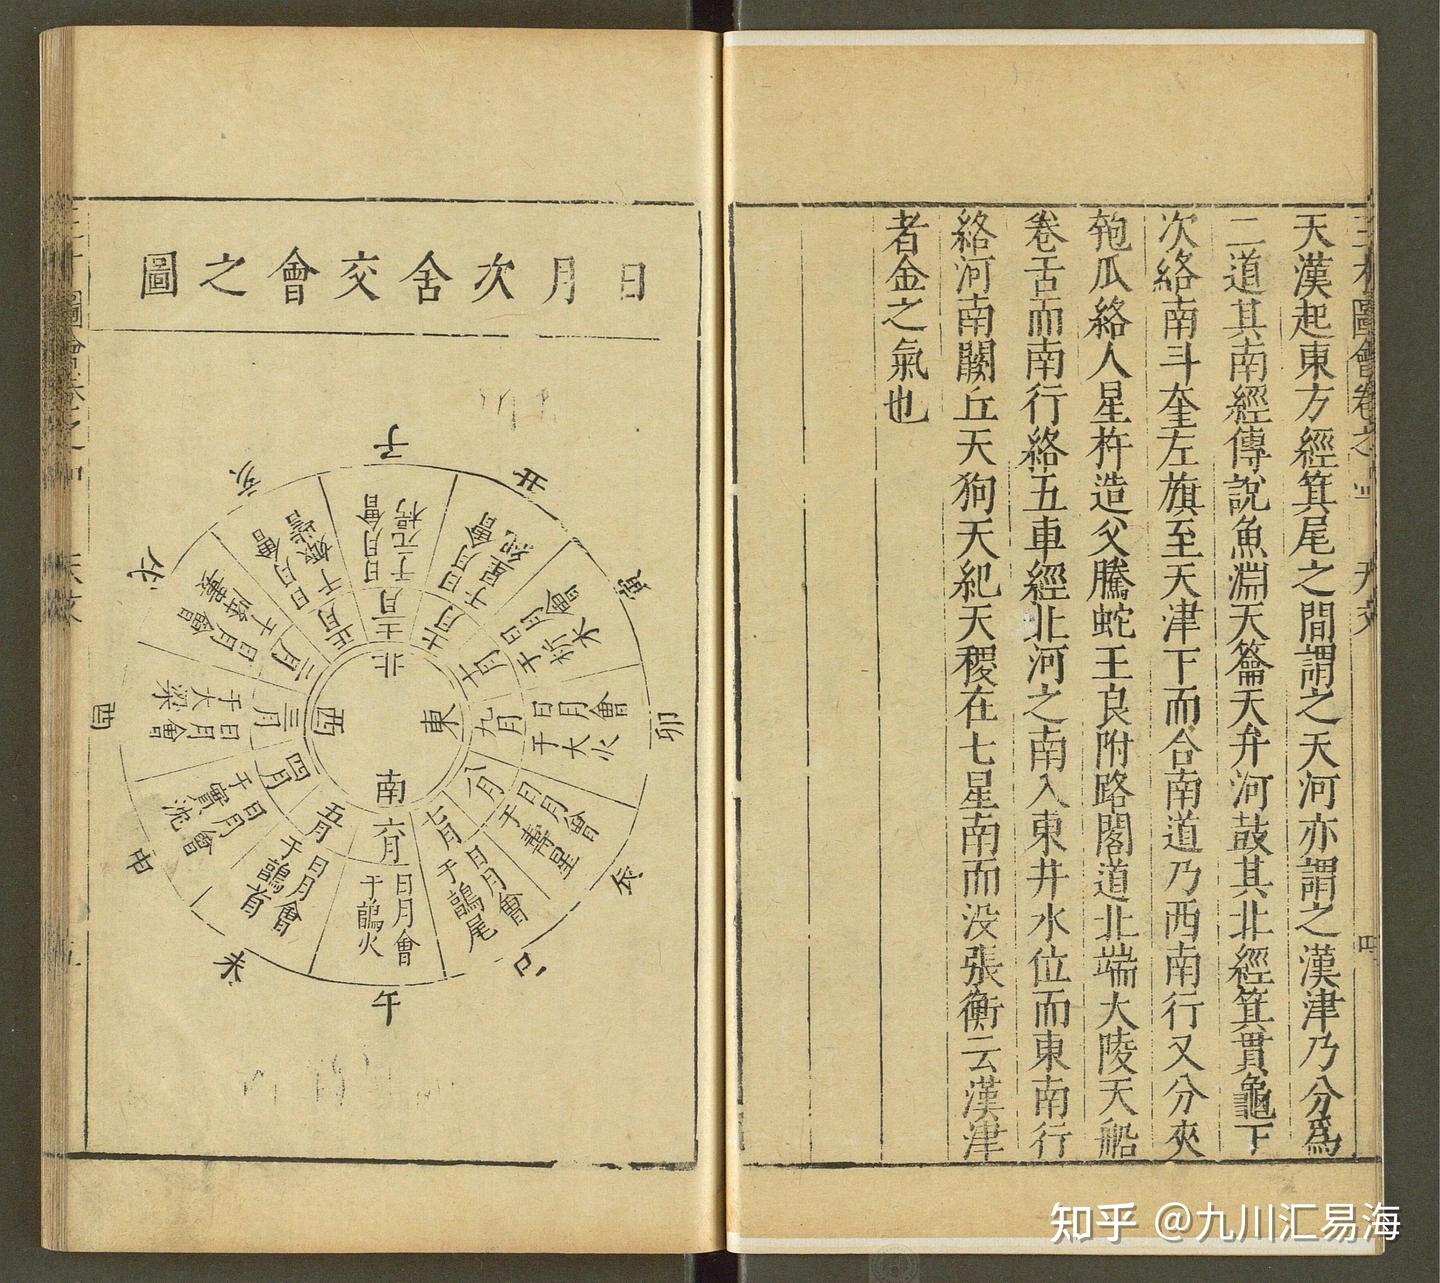 三才圖會卷之四 天文 四
天漢起東方經箕尾之間謂之天河亦謂之漢津乃分爲
二道其南經傳説魚淵天籥天弁河鼓其北經箕貫龜下
次絡南斗奎左旗至天津下而合南道乃西南行又分夾
匏瓜絡人星杵造父騰蛇王良附路閣道北端大陵天船
卷舌而南行絡五車經北河之南入東井水位而東南行
絡河南闕丘天狗天紀天稷在七星南而没張衡云漢津
者金之氣也
日月次舍交會之圖
子
丑
寅
卯
辰
巳
午
未
申
酉
戌
亥
日月會
于元枵
日月會
于星紀
日月會
于析木
日月會
于大火
日月會
于壽星
日月會
于鶉尾
日月會
于鶉火
日月會
于鶉首
日月會
于實沈
日月會
于大梁
日月會
于降婁
日月會
于娵訾
十月
九月
八月
七月
六月
五月
四月
三月
二月
正月
北
東
南
西
知乎 @九川汇易海